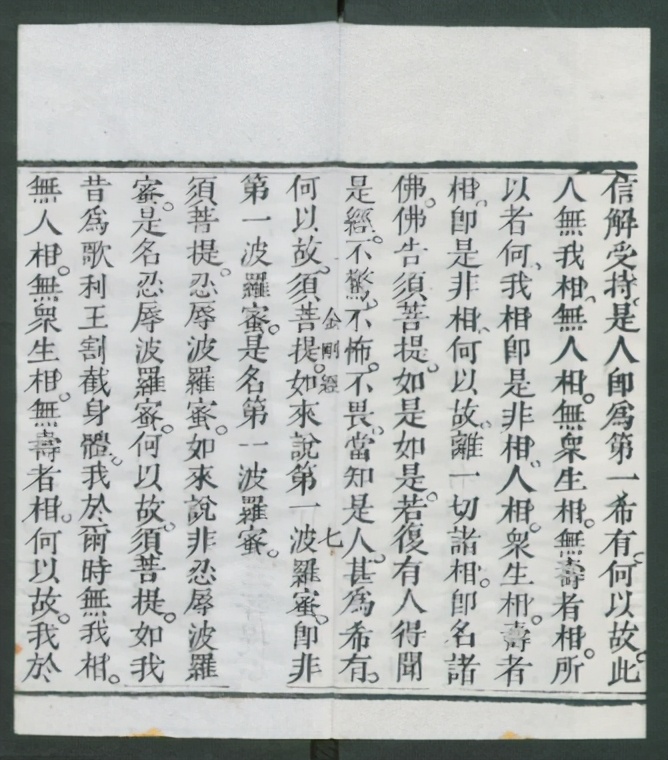 信解受持。是人卽爲第一希有。何以故。此
人無我相、無人相。無衆生相。無壽者相。所
以者何、我相卽是非相。人相。衆生相。壽者
相。卽是非相、何以故。離一切諸相。卽名諸
佛。佛告須菩提。如是如是。若復有人得聞
是經。不驚。不怖。不畏。當知是人。甚爲希有。
金剛經 七
何以故。須菩提。如來說第一波羅蜜。卽非
第一波羅蜜。是名第一波羅蜜。
須菩提。忍辱波羅蜜。如來說非忍辱波羅
蜜。是名忍辱波羅蜜。何以故。須菩提。如我
昔爲歌利王割截身體。我於爾時無我相。
無人相。無衆生相。無壽者相。何以故。我於